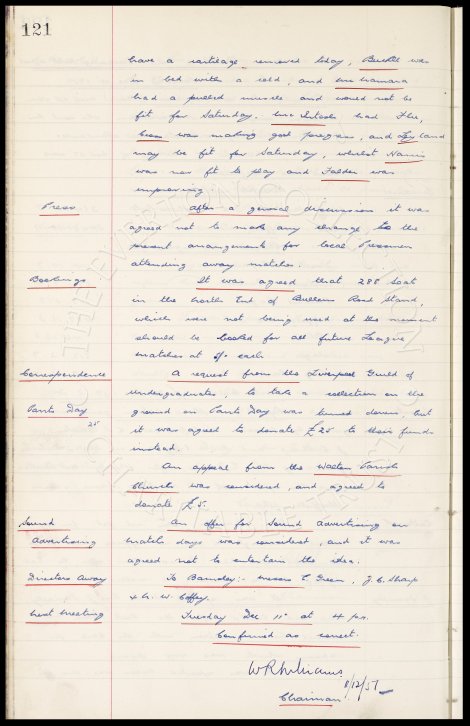 121
have a cartilage removed today, Buckle was
in bed with a cold, and McNamara
had a pulled muscle and would not be
fit for Saturday. McIntosh had Flu,
was making good progress, and
may be fit for Saturday, whilst Harris
was now fit to play and Falder was
improving.
Press
After a general discussion it was
agreed not to make any change to the
present arrangements for local Pressmen
attending away matches.
Bookings
It was agreed that 288 seat
in the North End of Bullens Road Stand,
which were not being used at the moment
should be booked for all future League
matches at each
Correspondence
A request from the Liverpool Guild of
Undergraduates, to take a collection on the
Panto Day
25
ground on Panto Day was turned down, but
it was agreed to donate £25 to their funds
instead.
An appeal from the Walton Parish
Church was considered, and agreed to
donate £5.
Sound
Advertising
An offer for Sound Advertising on
match days was considered, and it was
agreed not to entertain the idea.
Directors Away
To Barnsley:- Messrs C. Green, J. C. Sharp
& A. W. Coffey.
Next Meeting
Tuesday Dec 11th at 4 pm.
Confirmed as correct.
W R Williams
11/12/51
Chairman